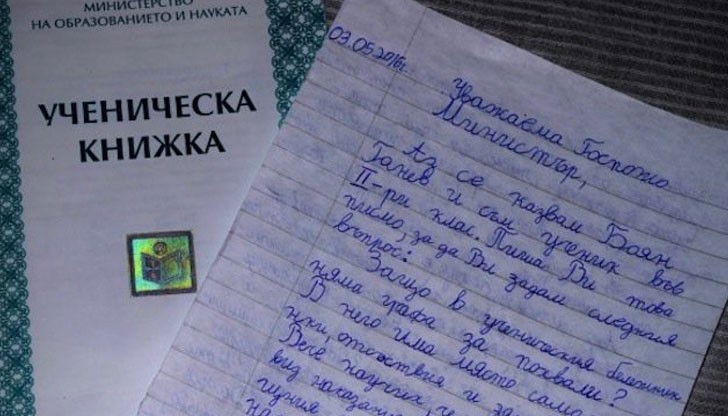 МИНИСТЕРСТВО
НА ОБРАЗОВАНИЕТО И НАУКАТА
УЧЕНИЧЕСКА
КНИЖКА
03.05.2016г.
Уважаема Госпожо
Министър,
Аз се казвам Боян
Ганев и съм ученик във
II-ри клас. Пиша Ви това
писмо, за да Ви задам следния
въпрос:
Защо в ученическия бележник
няма графа за похвали?
В него има място само
отсъствия и за
Вече научих, че
вид наказани